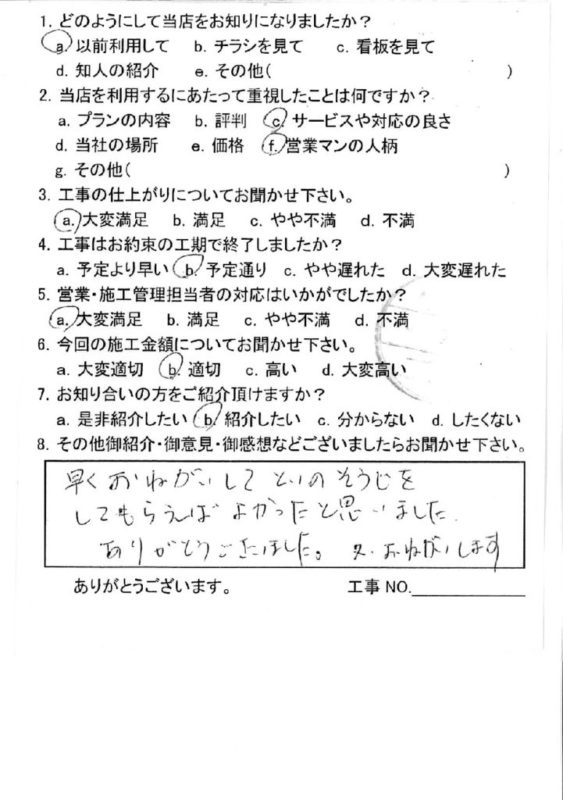 1. どのようにして当店をお知りになりましたか？
a. 以前利用して b. チラシを見て c. 看板を見て
d. 知人の紹介 e. その他( )
2. 当店を利用するにあたって重視したことは何ですか？
a. プランの内容 b. 評判 c. サービスや対応の良さ
d. 当社の場所 e. 価格 f. 営業マンの人柄
g. その他( )
3. 工事の仕上がりについてお聞かせ下さい。
a. 大変満足 b. 満足 c. やや不満 d. 不満
4. 工事はお約束の工期で終了しましたか？
a. 予定より早い b. 予定通り c. やや遅れた d. 大変遅れた
5. 営業・施工管理担当者の対応はいかがでしたか？
a. 大変満足 b. 満足 c. やや不満 d. 不満
6. 今回の施工金額についてお聞かせ下さい。
a. 大変適切 b. 適切 c. 高い d. 大変高い
7. お知り合いの方をご紹介頂けますか？
a. 是非紹介したい b. 紹介したい c. 分からない d. したくない
8. その他御紹介・御意見・御感想などございましたらお聞かせ下さい。
早くおねがいしてといのそうじを
してもらえばよかったと思いました.
ありがとうございました。又、おねがいします
ありがとうございます。 工事 NO.